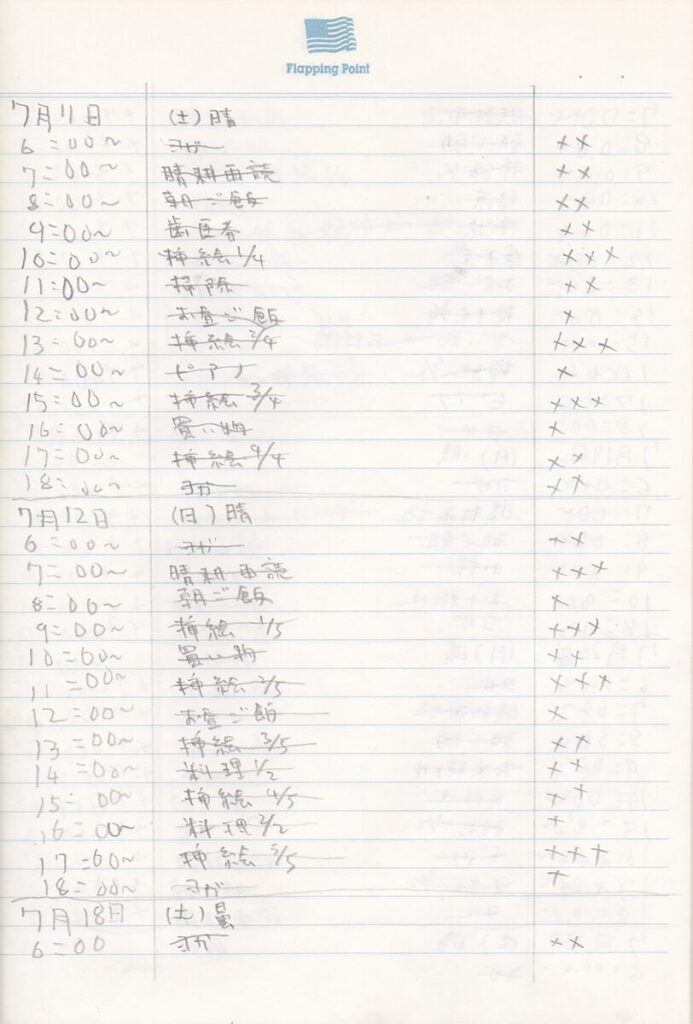 Flapping Point
7月11日 (土)晴
6:00~ ヨガ ××
7:00~ 晴耕雨読 ××
8:00~ 朝ご飯 ××
9:00~ 歯医者 ××
10:00~ 挿絵1/4 ×××
11:00~ 掃除 ××
12:00~ お昼ご飯 ×
13:00~ 挿絵2/4 ×××
14:00~ ピアノ ×
15:00~ 挿絵3/4 ×××
16:00~ 買い物 ×
17:00~ 挿絵4/4 ××
18:00~ ヨガ ××
7月12日 (日)晴
6:00~ ヨガ ××
7:00~ 晴耕雨読 ×××
8:00~ 朝ご飯 ×
9:00~ 挿絵1/5 ×××
10:00~ 買い物 ××
11:00~ 挿絵2/5 ×××
12:00~ お昼ご飯 ×
13:00~ 挿絵3/5 ××
14:00~ 料理1/2 ××
15:00~ 挿絵4/5 ××
16:00~ 料理2/2 ×
17:00~ 挿絵5/5 ×××
18:00~ ヨガ ×
7月18日 (土)曇
6:00 ヨガ ××